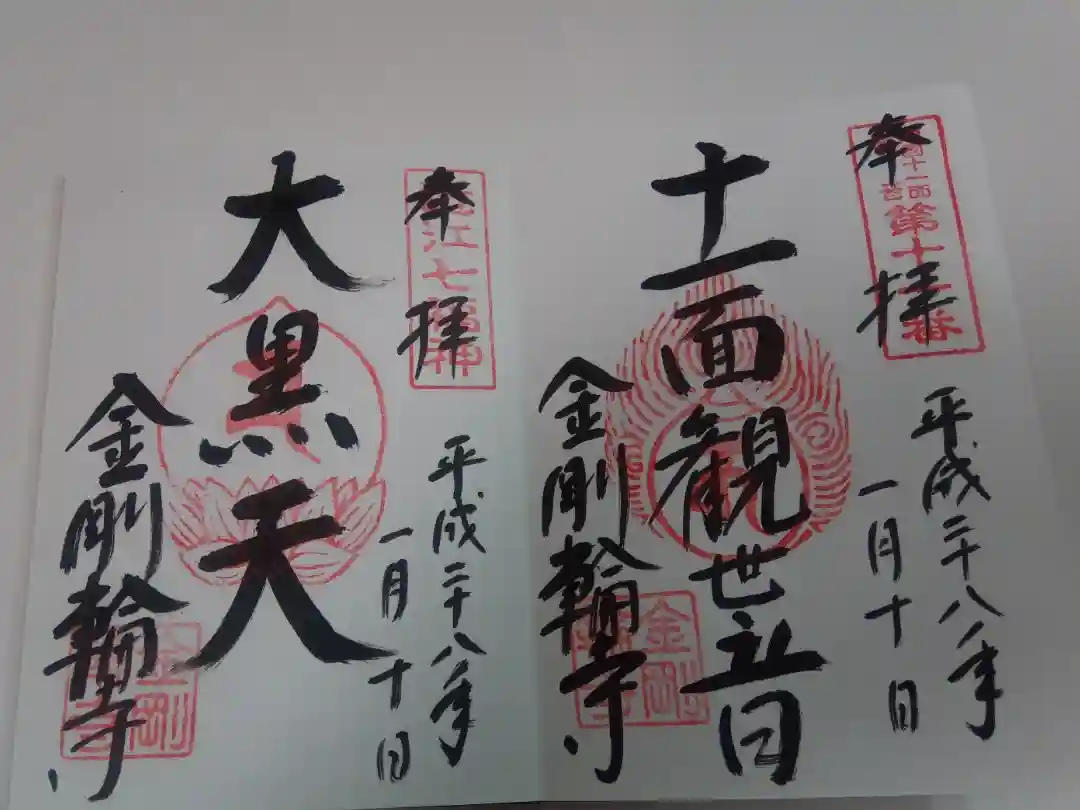 奉拝
第十二番
平成二十八年
一月十日
十一面観世音
金剛輪寺
金剛
奉拝
近江七福神
平成二十八年
一月十日
大黒天
金剛輪寺
金剛